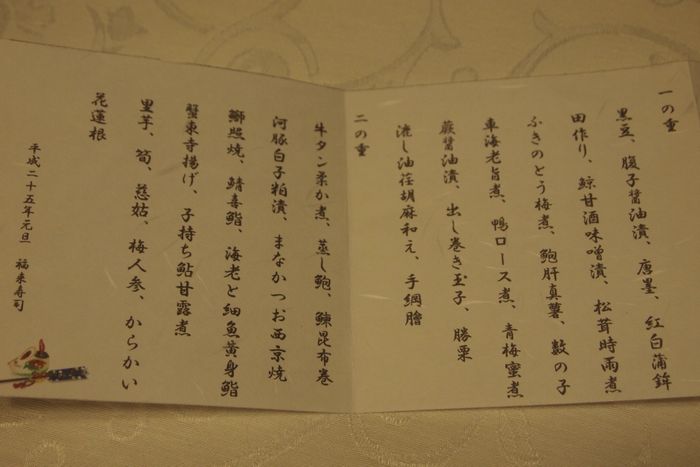 一の重
黒豆、腹子醤油漬、唐墨、紅白蒲鉾
田作り、鯨甘酒味噌漬、松茸時雨煮
ふきのとう梅煮、鮑肝真薯、数の子
車海老旨煮、鴨ロース煮、青梅蜜煮
蕨醤油漬、出し巻き玉子、勝栗
流し油荏胡麻和え、手綱膾
二の重
牛タン柔か煮、蒸し鮑、鰊昆布巻
河豚白子粕漬、まなかつお西京焼
鰤照焼、鯖寿鮨、海老と細魚黄身鮨
蟹東寺揚げ、子持ち鮎甘露煮
里芋、筍、慈姑、梅人参、からかい
花蓮根
平成二十五年元旦 福来寿司